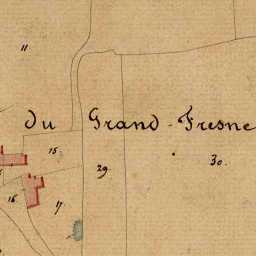 11
du Grand-Fresne
15.
29
30.
16
17